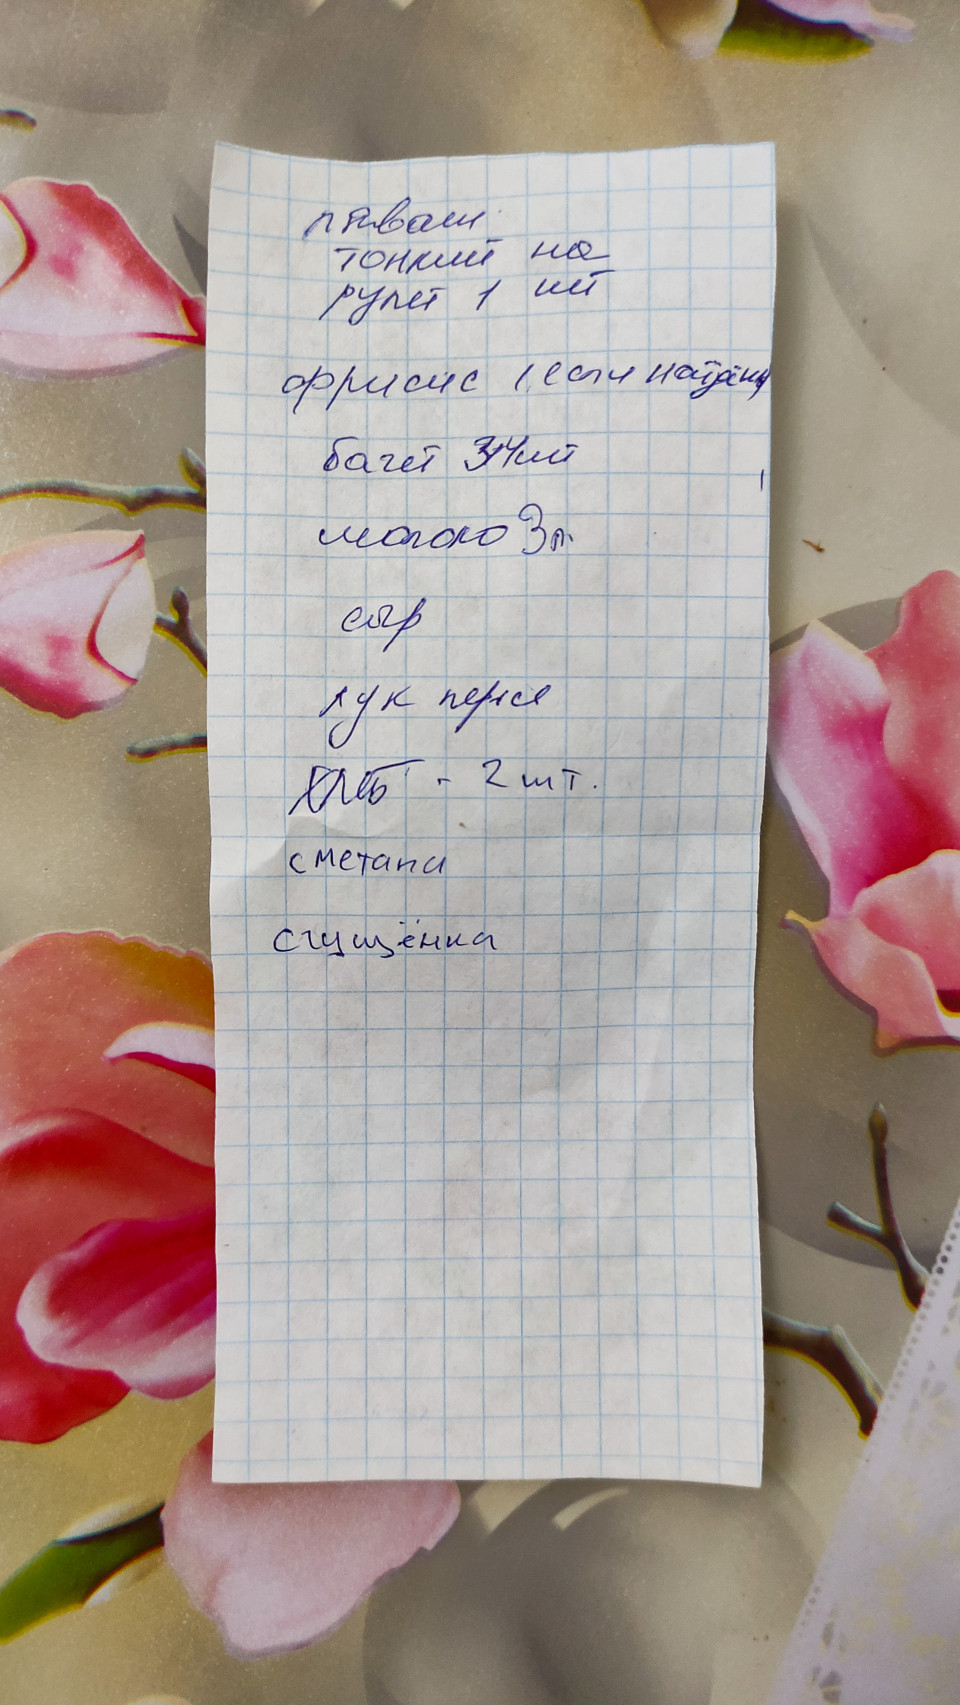 лаваш
тонкий на
рулет 1 шт
фрисис (если найдёшь)
багет 3-4 шт
молоко 3л.
сыр
лук перья
хлеб - 2 шт.
сметана
сгущёнка